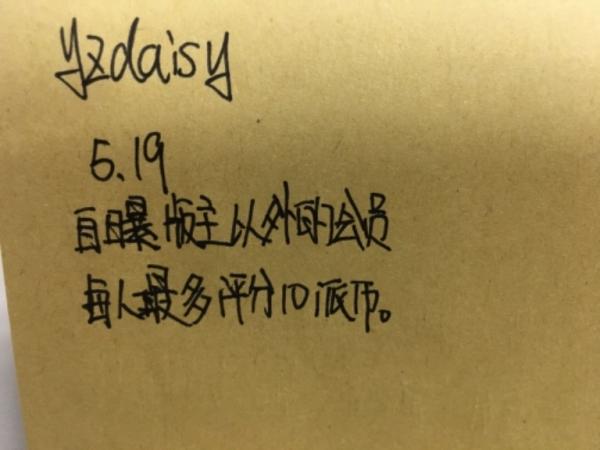 yzdaisy
5.19
自曝版主以外的会员
每人最多评分10派币。